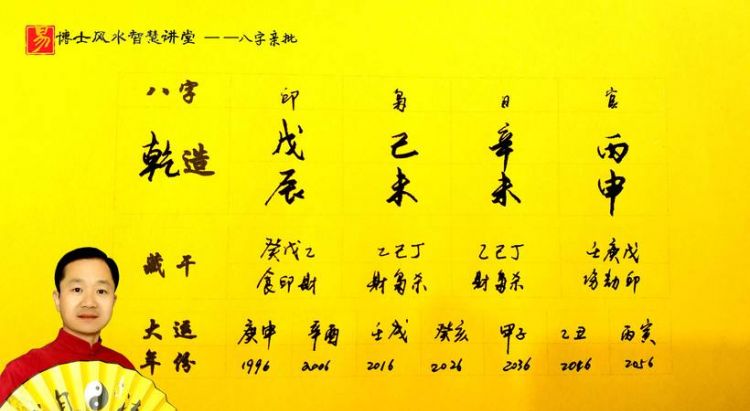 易 博士风水智慧讲堂 ——八字亲批
八字 印 枭 日 官
乾造 戊 己 辛 丙
辰 未 未 申
藏干 癸戊乙 乙己丁 乙己丁 壬庚戊
食印财 财枭杀 财枭杀 伤劫印
大运 庚申 辛酉 壬戌 癸亥 甲子 乙丑 丙寅
年份 1996 2006 2016 2026 2036 2046 2056